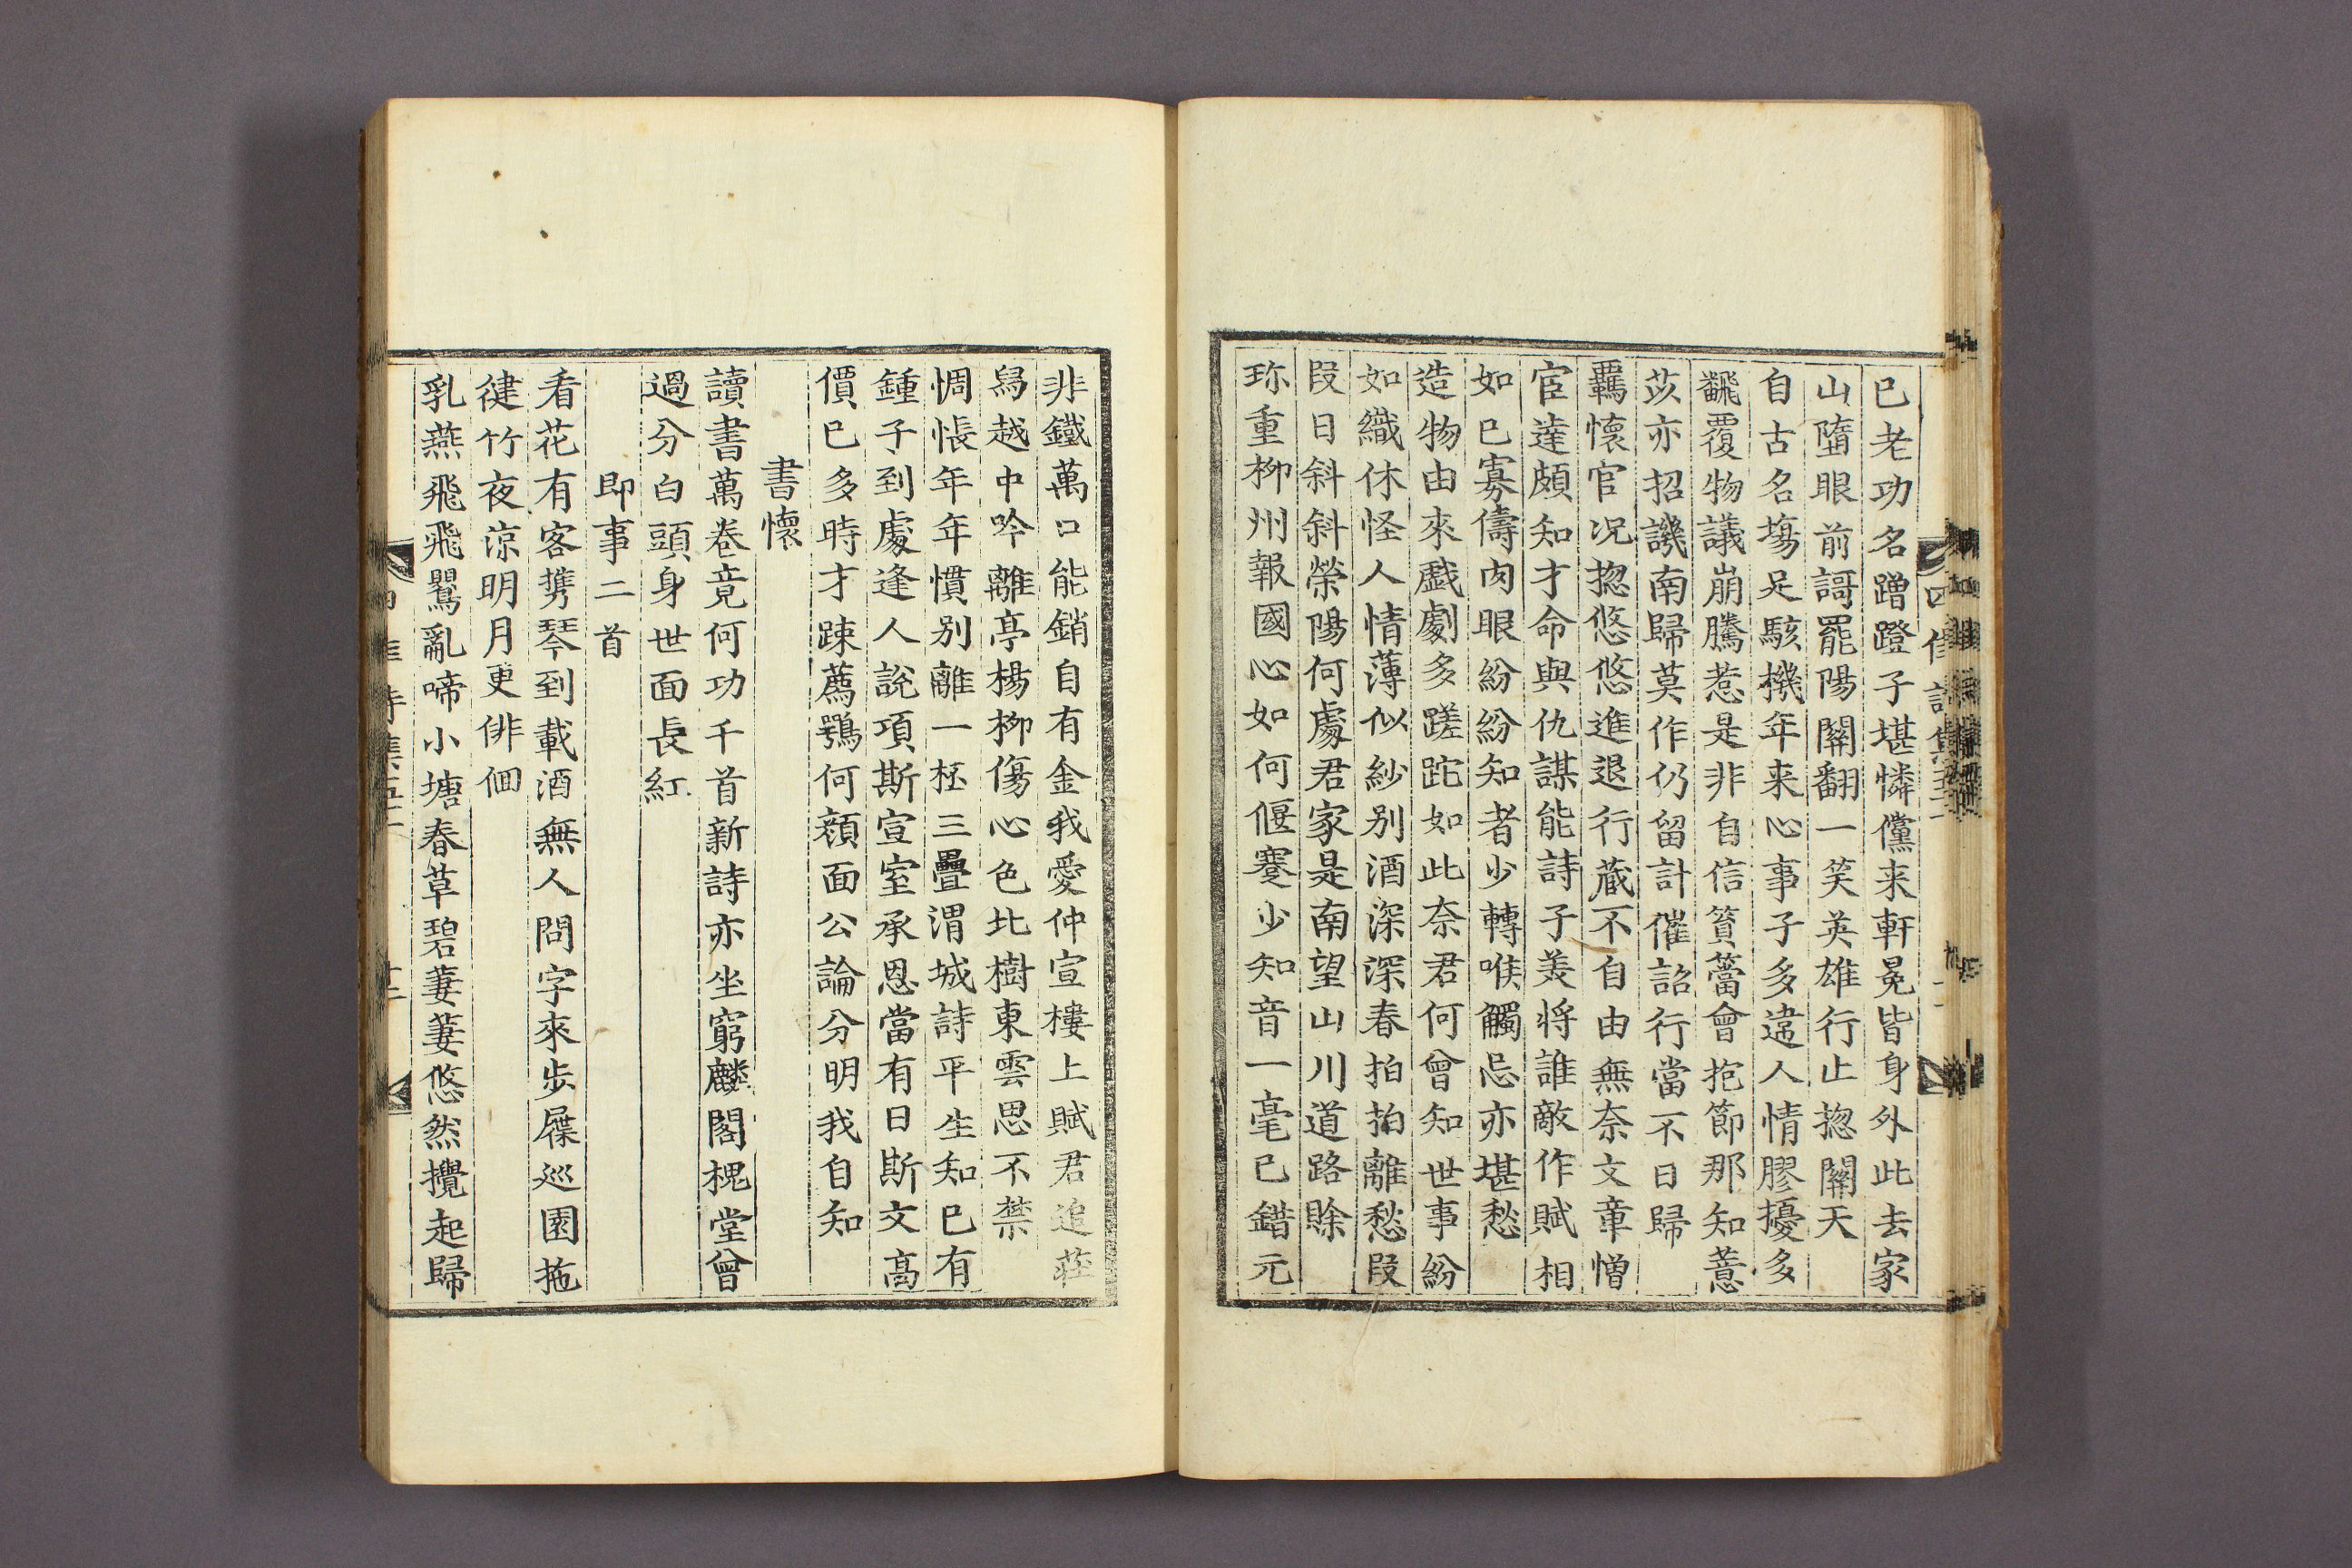 已老功名蹭蹬子堪憐儻来軒冕皆身外此去家
山墮眼前謌罷陽關翻一笑英雄行止揔關天
自古名塲足駭機年来心事子多違人情膠擾多
飜覆物議崩騰惹是非自信篔簹會抱節那知薏
苡亦招譏南歸莫作仍留計催詔行當不日歸
羈懷官况揔悠悠進退行蔵不自由無奈文章憎
宦達頗知才命與仇謀能詩子羙将誰敵作賦相
如已寡儔肉眼紛紛知者少轉喉觸忌亦堪愁
造物由來戲劇多蹉跎如此奈君何曾知世事紛
如織休怪人情薄似紗别酒深深春拍拍離愁段
段日斜斜榮陽何處君家是南望山川道路賖
珎重柳州報國心如何偃蹇少知音一毫已錯元
非鐵萬口能銷自有金我愛仲宣樓上賦君追莊
舄越中吟離亭楊柳傷心色北樹東雲思不禁
惆悵年年慣別離一杯三疊渭城詩平生知己有
鍾子到處逢人說項斯宣室承恩當有日斯文髙
價已多時才踈薦鶚何顔面公論分明我自知
書懷
讀書萬卷竟何功千首新詩亦坐窮麟閣槐堂曾
過分白頭身世面長紅
即事二首
看花有客携琴到載酒無人問字來步屧巡園拖
徤竹夜涼明月更俳佪
乳燕飛飛鸎亂啼小塘春草碧萋萋悠然攪起歸